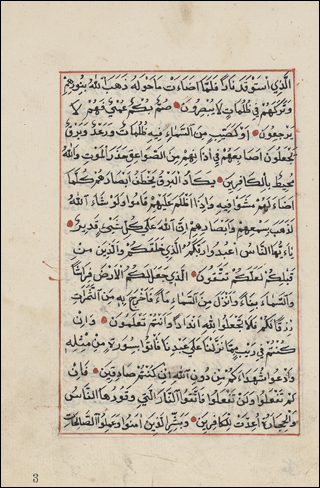 الَّذِي اسْتَوْقَدَ نَارًا فَلَمَّا اَضَاءَتْ مَا حَوْلَهُ ذَهَبَ اللهُ بِنُورِهِمْ
وَتَرَكَهُمْ فِي ظُلُمَاتٍ لَا يُبْصِرُونَ صُمٌّ بُكْمٌ عُمْيٌ فَهُمْ لَا
يَرْجِعُونَ اَوْ كَصَيِّبٍ مِنَ السَّمَاءِ فِيهِ ظُلُمَاتٌ وَرَعْدٌ وَبَرْقٌ
يَجْعَلُونَ اَصَابِعَهُمْ فِي اٰذَانِهِمْ مِنَ الصَّوَاعِقِ حَذَرَ الْمَوْتِ وَاللهُ
مُحِيطٌ بِالْكَافِرِينَ يَكَادُ الْبَرْقُ يَخْطَفُ اَبْصَارَهُمْ كُلَّمَا
اَضَاءَ لَهُمْ مَشَوْا فِيهِ وَاِذَا اَظْلَمَ عَلَيْهِمْ قَامُوا وَلَوْ شَاءَ اللهُ
لَذَهَبَ بِسَمْعِهِمْ وَاَبْصَارِهِمْ اِنَّ اللهَ عَلٰى كُلِّ شَيْءٍ قَدِيرٌ
يَاءَيُّهَا النَّاسُ اعْبُدُوا رَبَّكُمُ الَّذِي خَلَقَكُمْ وَالَّذِينَ مِنْ
قَبْلِكُمْ لَعَلَّكُمْ تَتَّقُونَ الَّذِي جَعَلَ لَكُمُ الْاَرْضَ فِرَاشًا
وَالسَّمَاءَ بِنَاءً وَاَنْزَلَ مِنَ السَّمَاءِ مَاءً فَاَخْرَجَ بِهِ مِنَ الثَّمَرَاتِ
رِزْقًا لَكُمْ فَلَا تَجْعَلُوا لِلهِ اَنْدَادًا وَاَنْتُمْ تَعْلَمُونَ وَاِنْ
كُنْتُمْ فِي رَيْبٍ مِمَّا نَزَّلْنَا عَلٰى عَبْدِنَا فَأْتُوا بِسُورَةٍ مِنْ مِثْلِهِ
وَادْعُوا شُهَدَاءَكُمْ مِنْ دُونِ اللهِ اِنْ كُنْتُمْ صَادِقِينَ فَاِنْ
لَمْ تَفْعَلُوا وَلَنْ تَفْعَلُوا فَاتَّقُوا النَّارَ الَّتِي وَقُودُهَا النَّاسُ
وَالْحِجَارَةُ اُعِدَّتْ لِلْكَافِرِينَ وَبَشِّرِ الَّذِينَ اٰمَنُوا وَعَمِلُوا الصَّالِحَاتِ
3